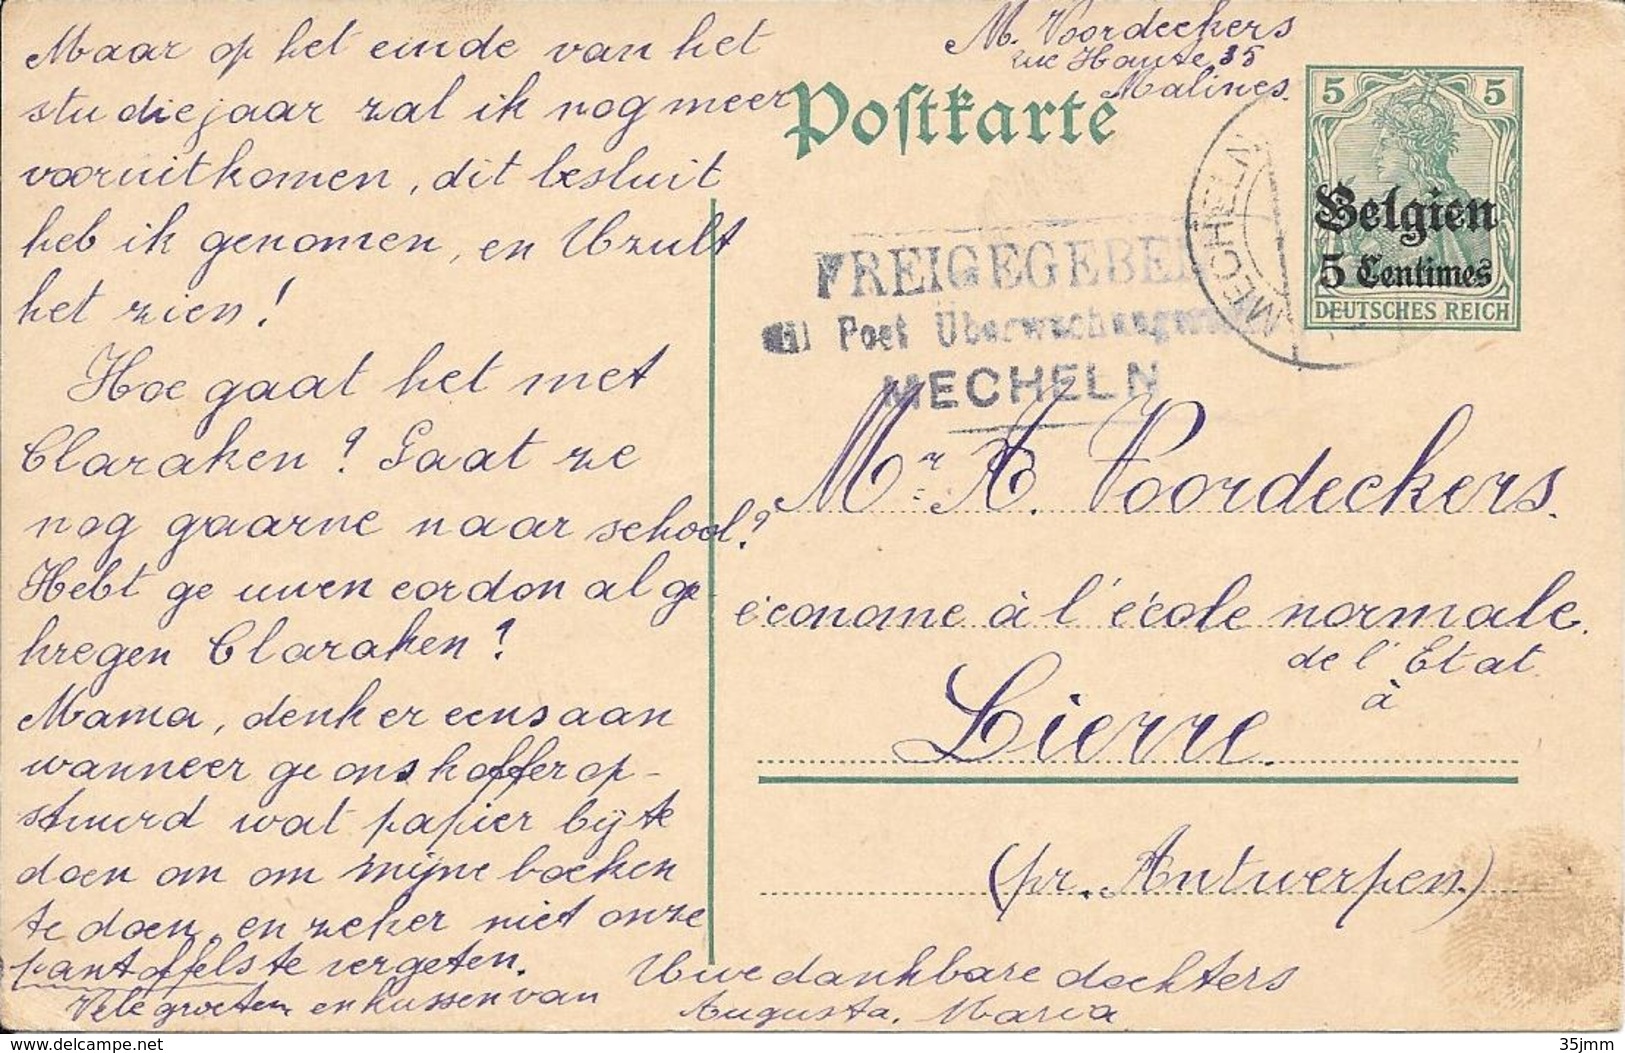 Maar op het einde van het
studiejaar zal ik nog meer
vooruitkomen, dit besluit
heb ik genomen, en U zult
het zien!
Hoe gaat het met
Claraken? Gaat ze
nog gaarne naar school?
Hebt ge uwen cordon al ge-
kregen Claraken?
Mama, denk er eens aan
wanneer ge ons koffer op-
stuurd wat papier bij te
doen om om mijne boeken
te doen, en zeker niet onze
pantoffels te vergeten.
Vele groeten en kussen van
Uwe dankbare dochters
Augusta, Maria
M. Voordeckers
rue Haute 35
Malines.
Postkarte
5 5
Belgien
5 Centimes
DEUTSCHES REICH
MECHELN
FREIGEGEBEN
Mil Post Überwachungs
MECHELN
Mr A. Voordeckers.
économe à l'école normale.
de l'Etat
à
Lierre.
(pr. Antwerpen.)
35jmm